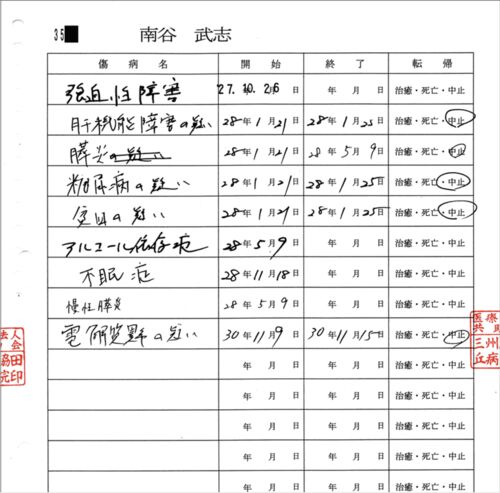 35 南谷 武志
傷病名 開始 終了 転帰
強迫性障害 27.10.26日 年 月 日 治癒・死亡・中止
肝機能障害の疑い 28年1月21日 28年1月25日 治癒・死亡・中止
膵炎の疑い 28年1月21日 28年5月9日 治癒・死亡・中止
糖尿病の疑い 28年1月21日 28年1月25日 治癒・死亡・中止
の疑い 28年1月21日 28年1月25日 治癒・死亡・中止
アルコール依存症 28年5月9日 年 月 日 治癒・死亡・中止
不眠症 28年11月18日 年 月 日 治癒・死亡・中止
慢性膵炎 28年5月9日 年 月 日 治癒・死亡・中止
電解質異常の疑い 30年11月9日 30年11月15日 治癒・死亡・中止
年 月 日 年 月 日 治癒・死亡・中止
年 月 日 年 月 日 治癒・死亡・中止
年 月 日 年 月 日 治癒・死亡・中止
年 月 日 年 月 日 治癒・死亡・中止
年 月 日 年 月 日 治癒・死亡・中止
法人
会
脇田
院印
医療
共
三州
丘病